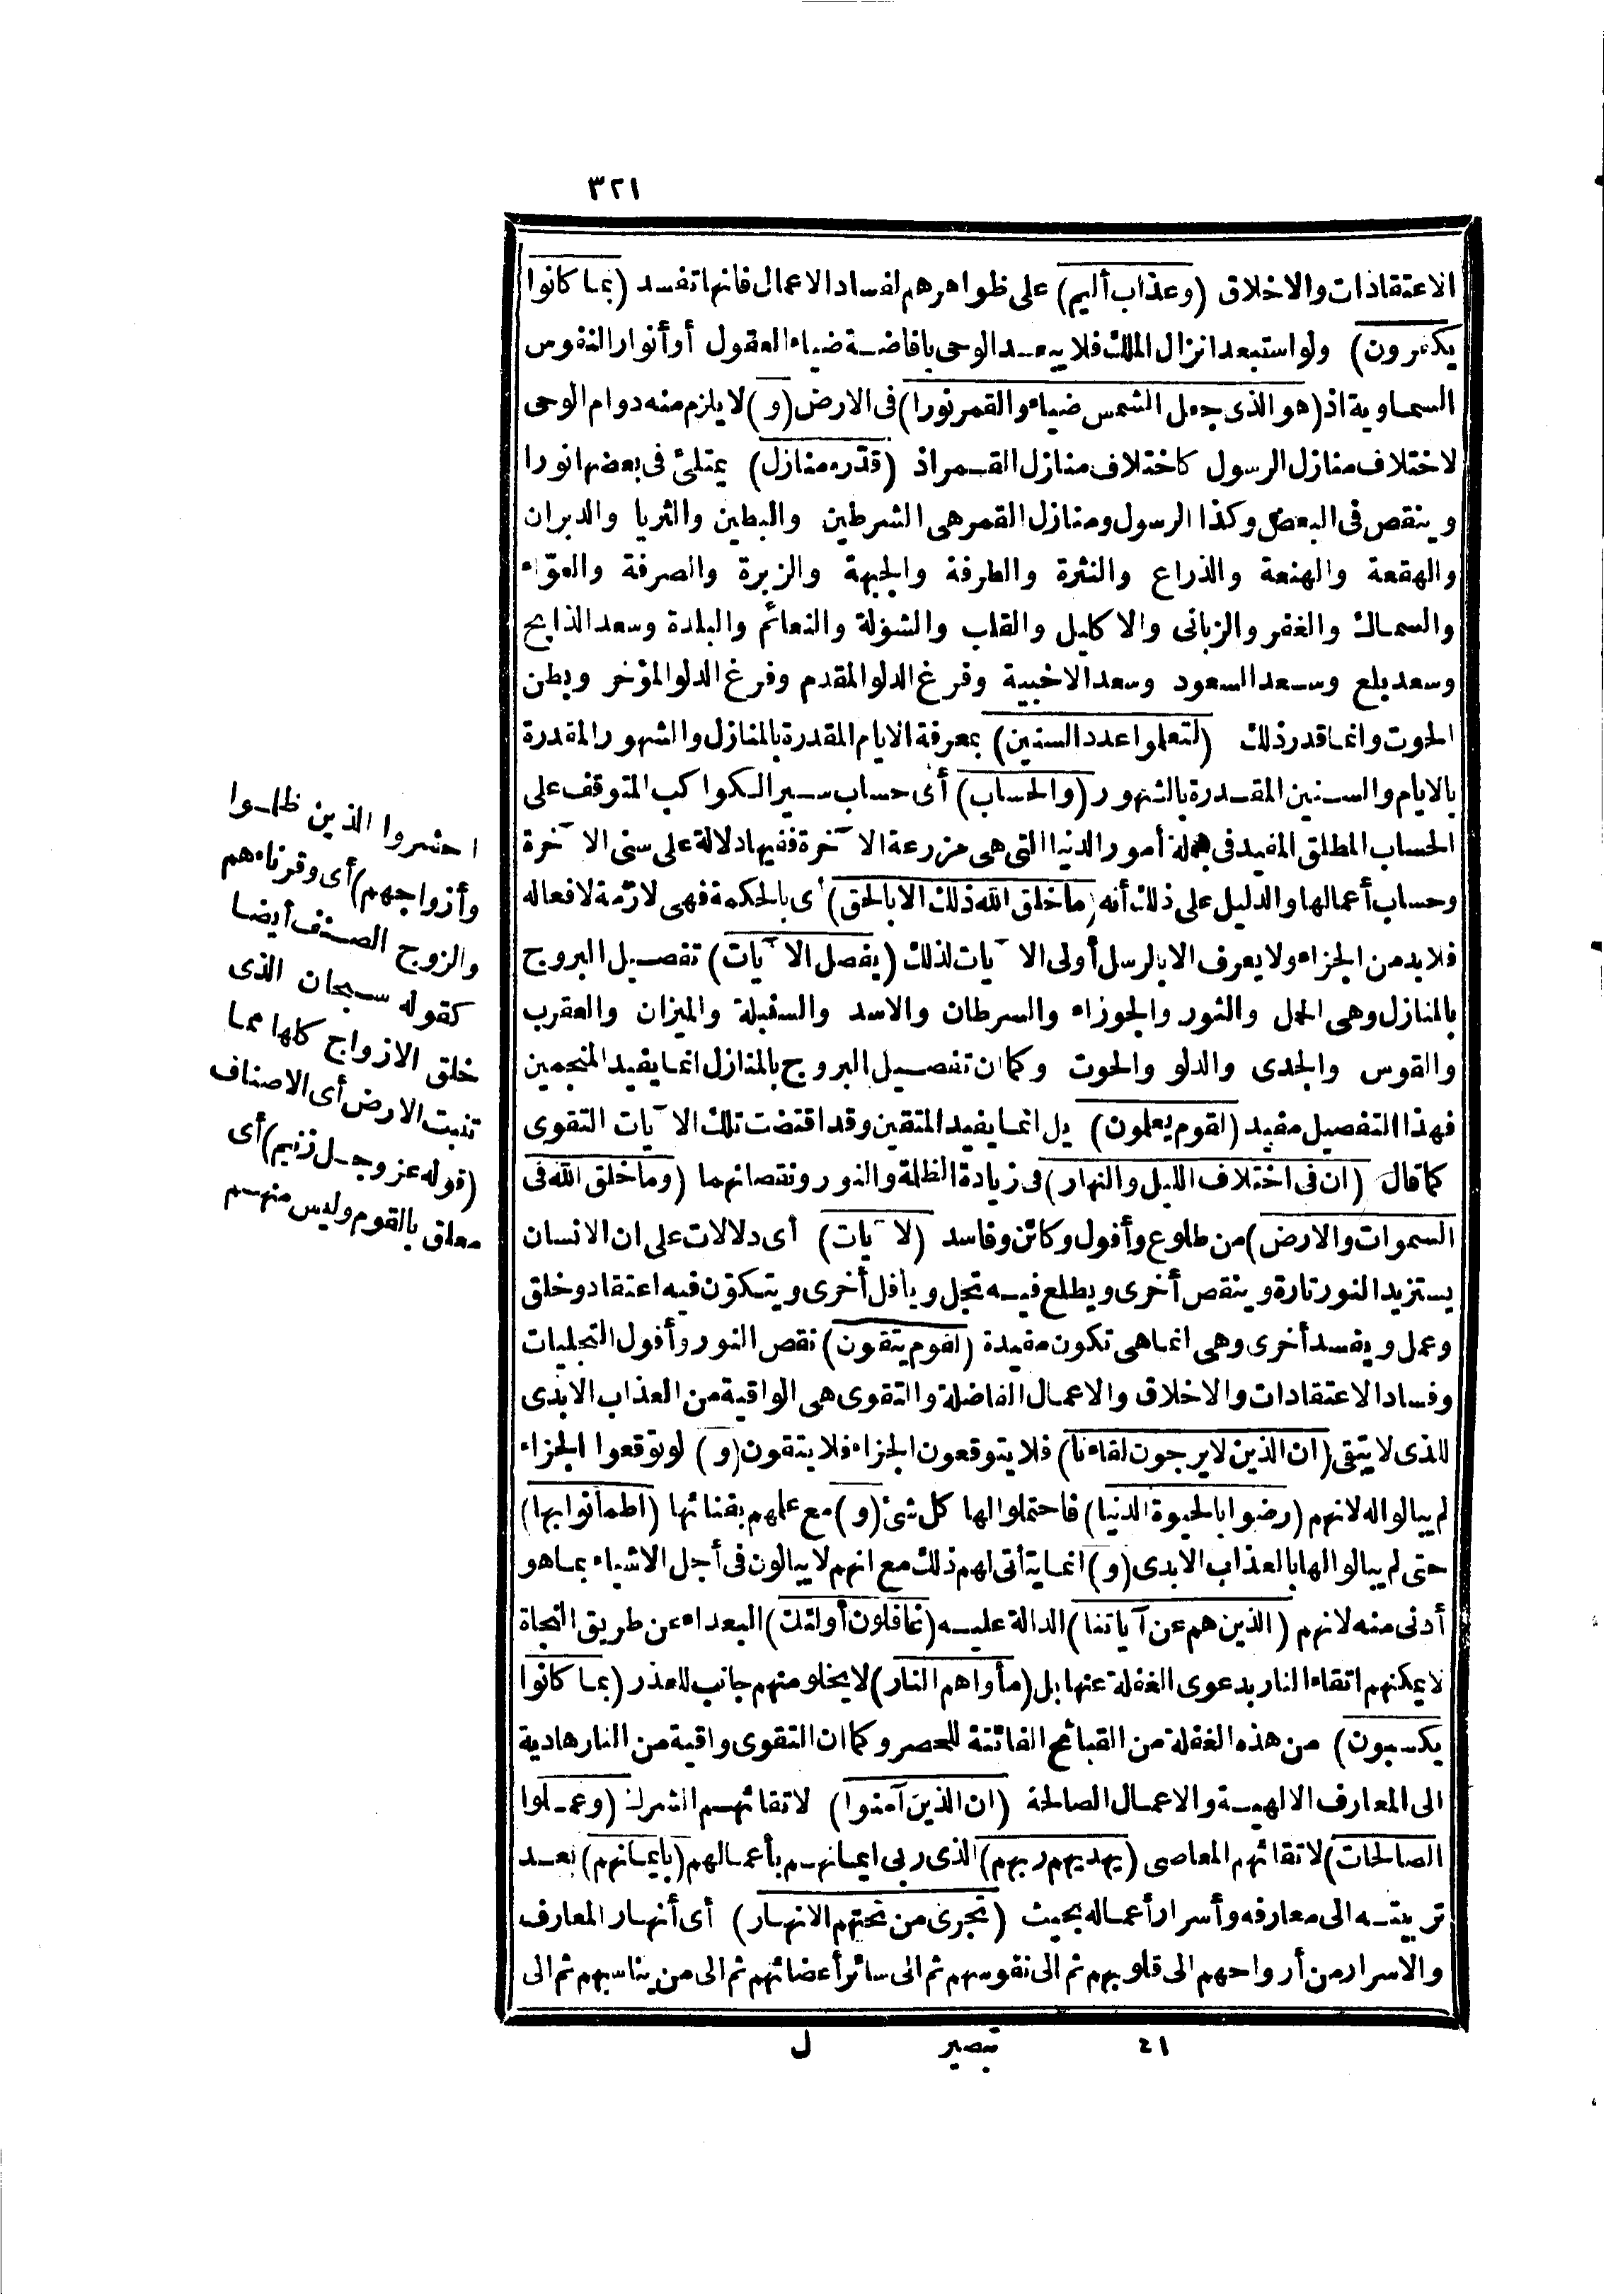 ٣٢١
الاعتقادات والاخلاق (وعذاب أليم) على ظواهرهم لفساد الاعمال فانها تفسد (بما كانوا
يكفرون) ولو استبعد انزال الملك فلا يبعد الوحى بافاضة ضياء العقول أو أنوار النفوس
السماوية اذ (هو الذى جعل الشمس ضياء والقمر نورا) فى الارض (و) لا يلزم منه دوام الوحى
لاختلاف منازل الرسول كاختلاف منازل القمر اذ (قدّره منازل) يمتلئ فى بعضها نورا
وينقص فى البعض وكذا الرسول ومنازل القمر هى الشرطين والبطين والثريا والدبران
والهقعة والهنعة والذراع والنثرة والطرفة والجبهة والزبرة والصرفة والعوّاء
والسماك والغفر والزبانى والاكليل والقلب والشولة والنعائم والبلدة وسعد الذابح
وسعد بلع وسعد السعود وسعد الاخبية وفرغ الدلو المقدم وفرغ الدلو المؤخر وبطن
الحوت وانما قدر ذلك (لتعلموا عدد السنين) بمعرفة الايام المقدرة بالمنازل والشهور المقدرة
بالايام والسنين المقدرة بالشهور (والحساب) أى حساب سير الكواكب المتوقف على
الحساب المطلق المفيد فى جملة أمور الدنيا التى هى مزرعة الآخرة ففيها دلالة على سنى الآخرة
وحساب أعمالها والدليل على ذلك أنه (ما خلق الله ذلك الا بالحق) أى بالحكمة فهى لازمة لافعاله
فلا بد من الجزاء ولا يعرف الا بالرسل أولى الآيات لذلك (يفصل الآيات) تفصيل البروج
بالمنازل وهى الحمل والثور والجوزاء والسرطان والاسد والسنبلة والميزان والعقرب
والقوس والجدى والدلو والحوت وكما ان تفصيل البروج بالمنازل انما يفيد المنجمين
فهذا التفصيل مفيد (لقوم يعلمون) بل انما يفيد المتقين وقد اقتضت تلك الآيات التقوى
كما قال (ان فى اختلاف الليل والنهار) فى زيادة الظلمة والنور ونقصانهما (وما خلق الله فى
السموات والارض) من طلوع وأفول وكائن وفاسد (لآيات) أى دلالات على ان الانسان
يستزيد النور تارة وينقص أخرى ويطلع فيه تجل ويأفل أخرى ويتكوّن فيه اعتقاد وخلق
وعمل ويفسد أخرى وهى انما هى تكون مفيدة (لقوم يتقون) نقص النور وأفول التجليات
وفساد الاعتقادات والاخلاق والاعمال الفاضلة والتقوى هى الواقية من العذاب الابدى
للذى لا يتقى (ان الذين لا يرجون لقاءنا) فلا يتوقعون الجزاء فلا يتقون (و) لو توقعوا الجزاء
لم يبالوا له لانهم (رضوا بالحيوة الدنيا) فاحتملوا لها كل شئ (و) مع علمهم بفنائها (اطمأنوا بها)
حتى لم يبالوا لها بالعذاب الابدى (و) انما يتأتى لهم ذلك مع انهم لا يبالون فى أجل الاشياء بما هو
أدنى منه لانهم (الذين هم عن آياتنا) الدالة عليه (غافلون أولئك) البعداء عن طريق النجاة
لا يمكنهم اتقاء النار بدعوى الغفلة عنها بل (مأواهم النار) لا يخلو منهم جانب للعذر (بما كانوا
يكسبون) من هذه الغفلة من القبائح الفائتة للحصر وكما ان التقوى واقية من النار هادية
الى المعارف الالهية والاعمال الصالحة (ان الذين آمنوا) لاتقائهم الشرك (وعملوا
الصالحات) لاتقائهم المعاصى (يهديهم ربهم) الذى ربى ايمانهم بأعمالهم (بايمانهم) بعد
تربيته الى معارفه وأسرار أعماله بحيث (تجرى من تحتهم الانهار) أى أنهار المعارف
والاسرار من أرواحهم الى قلوبهم ثم الى نفوسهم ثم الى سائر أعضائهم ثم الى من يناسبهم ثم الى
احشروا الذين ظلموا
وأزواجهم) أى وقرناءهم
والزوج الصنف أيضا
كقوله سبحان الذى
خلق الازواج كلها مما
تنبت الارض أى الاصناف
(قوله عز وجل زنيم) أى
معلق بالقوم وليس منهم
٤١ تبصير ل